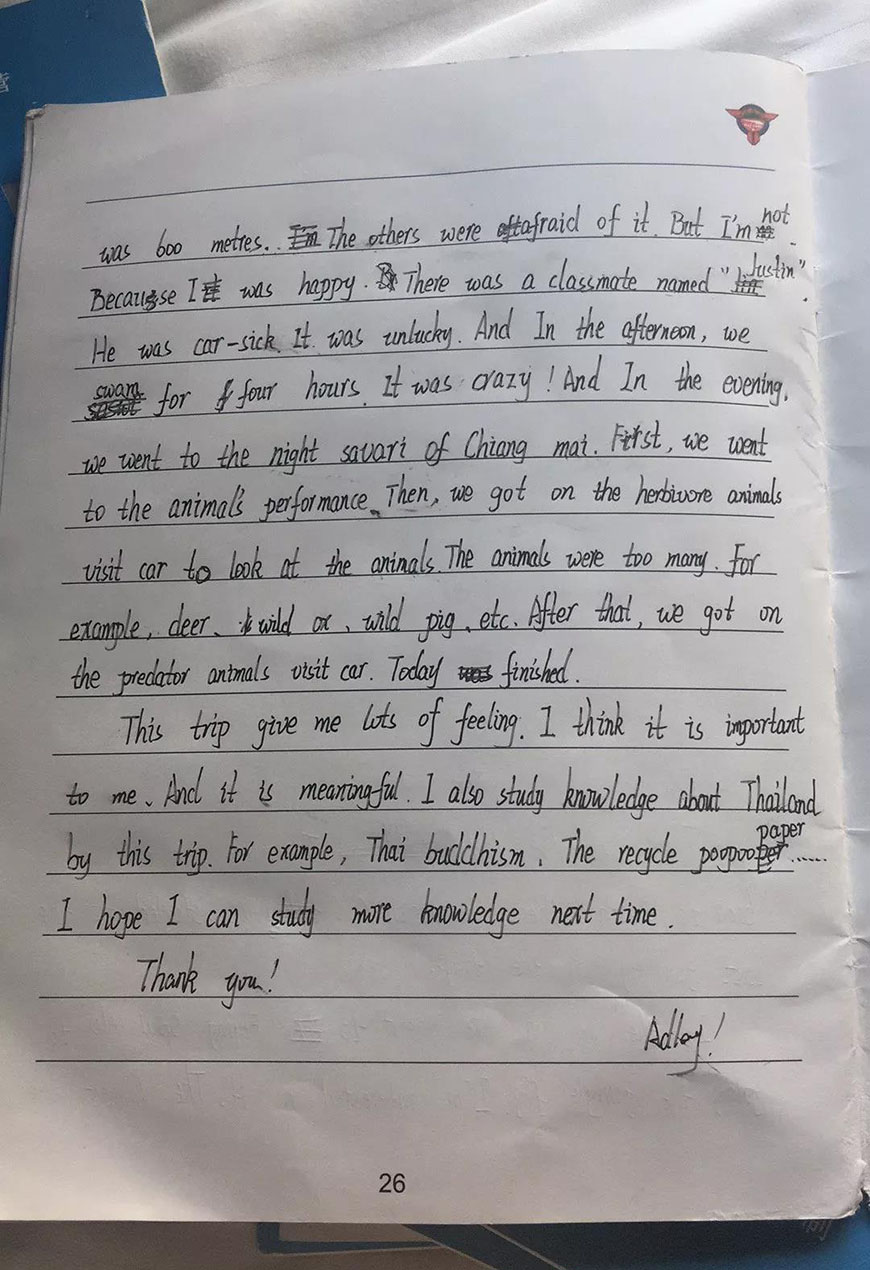 was 600 metres. The others were afraid of it. But I'm not.
Because I was happy. There was a classmate named "Justin".
He was car-sick. It was unlucky. And In the afternoon, we
swam for four hours. It was crazy! And In the evening,
we went to the night savari of Chiang mai. First, we went
to the animal's performance. Then, we got on the herbivore animals
visit car to look at the animals. The animals were too many. For
example, deer、wild ox、wild pig、etc. After that, we got on
the predator animals visit car. Today finished.
This trip give me lots of feeling. I think it is important
to me、And it is meaningful. I also study knowledge about Thailand
by this trip. For example, Thai buddhism、The recycle poopoo paper ......
I hope I can study more knowledge next time.
Thank you!
Adlay!
26